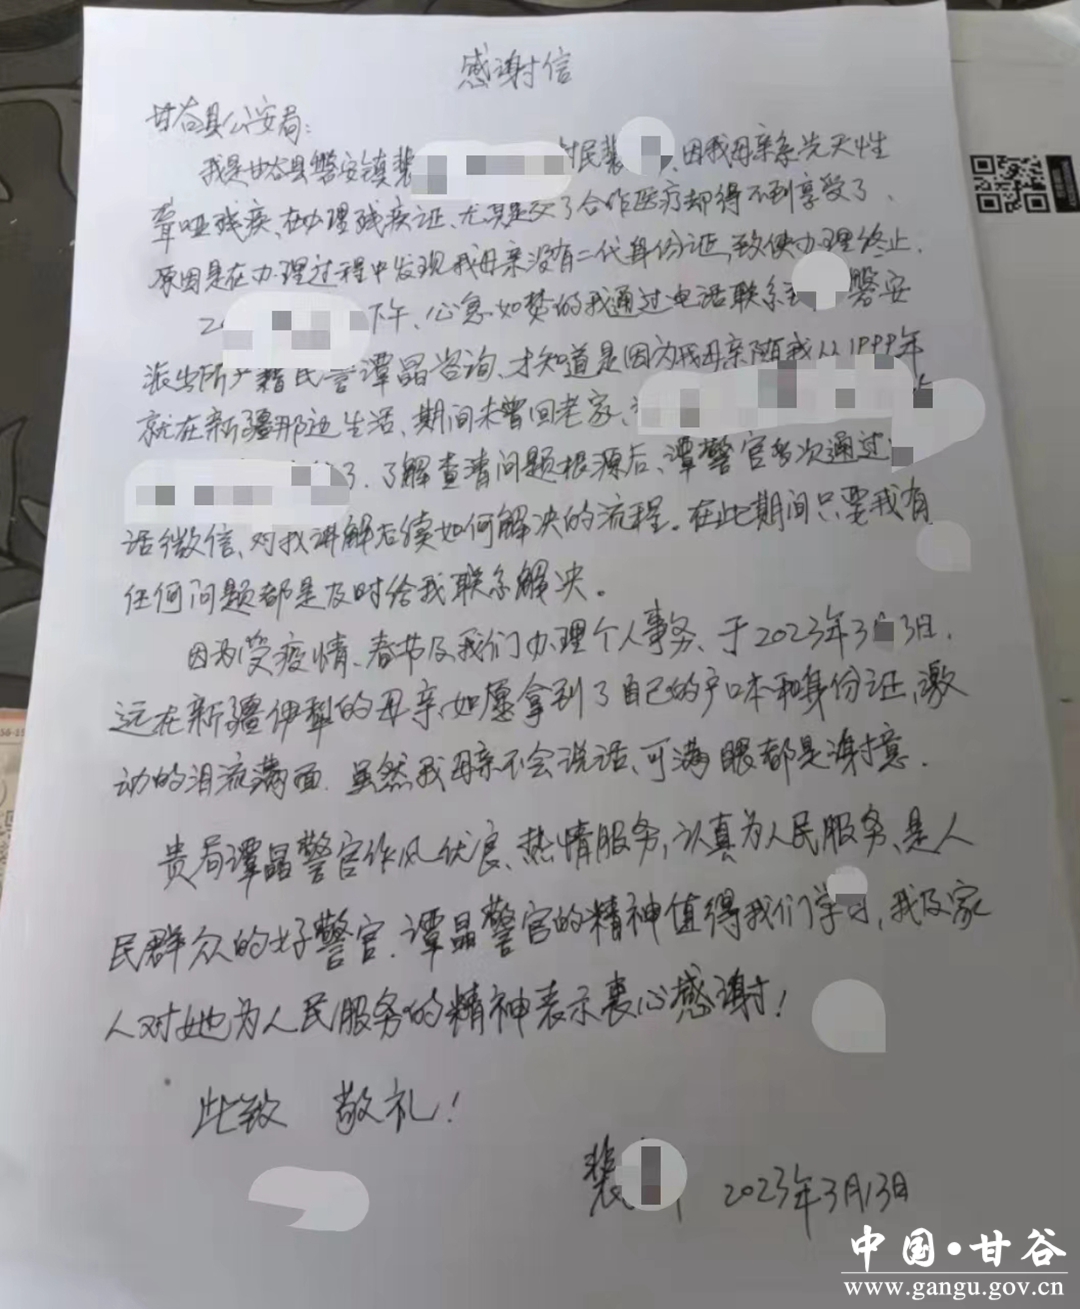 感谢信
甘谷县公安局:
我是甘谷县磐安镇裴 村民裴 ,因我母亲系先天性
聋哑残疾、在办理残疾证、尤其是交了合作医疗却得不到享受了、
原因是在办理过程中发现我母亲没有二代身份证、致使办理终止.
2 下午、心急如焚的我通过电话联系 磐安
派出所户籍民警谭晶咨询、才知道是因为我母亲随我从1999年
就在新疆那边生活、期间未曾回老家、
了.了解查清问题根源后、谭警官多次通过
话微信、对我讲解后续如何解决的流程。在此期间只要我有
任何问题都是及时给我联系解决。
因为受疫情、春节及我们办理个人事务、于2023年3月3日.
远在新疆伊犁的母亲如愿拿到了自己的户口本和身份证、激
动的泪流满面.虽然我母亲不会说话、可满眼都是谢意.
贵局谭晶警官作风优良、热情服务,认真为人民服务、是人
民群众的好警官.谭晶警官的精神值得我们学习,我及家
人对她为人民服务的精神表示衷心感谢!
此致 敬礼!
裴 2023年3月13日
中国·甘谷
www.gangu.gov.cn